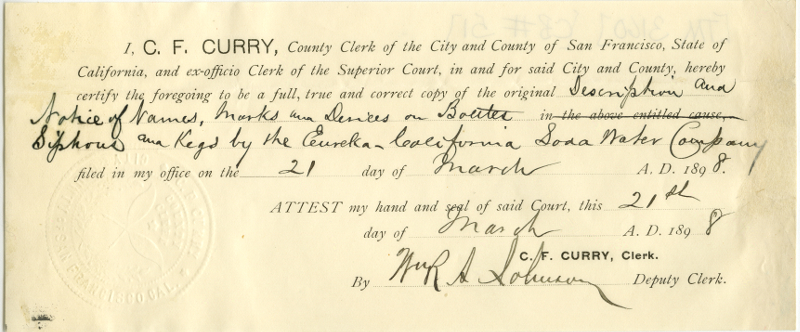 I, C. F. CURRY, County Clerk of the City and County of San Francisco, State of
California, and ex-officio Clerk of the Superior Court, in and for said City and County, hereby
certify the foregoing to be a full, true and correct copy of the original Description and
Notice of Names, Marks and Devices on Bottles in the above entitled cause,
Siphons and Kegs by the Eureka-California Soda Water Company
filed in my office on the 21 day of March A. D. 1898.
ATTEST my hand and seal of said Court, this 21st
day of March A. D. 1898
C. F. CURRY, Clerk.
By Johnson Deputy Clerk.
SAN FRANCISCO CAL.